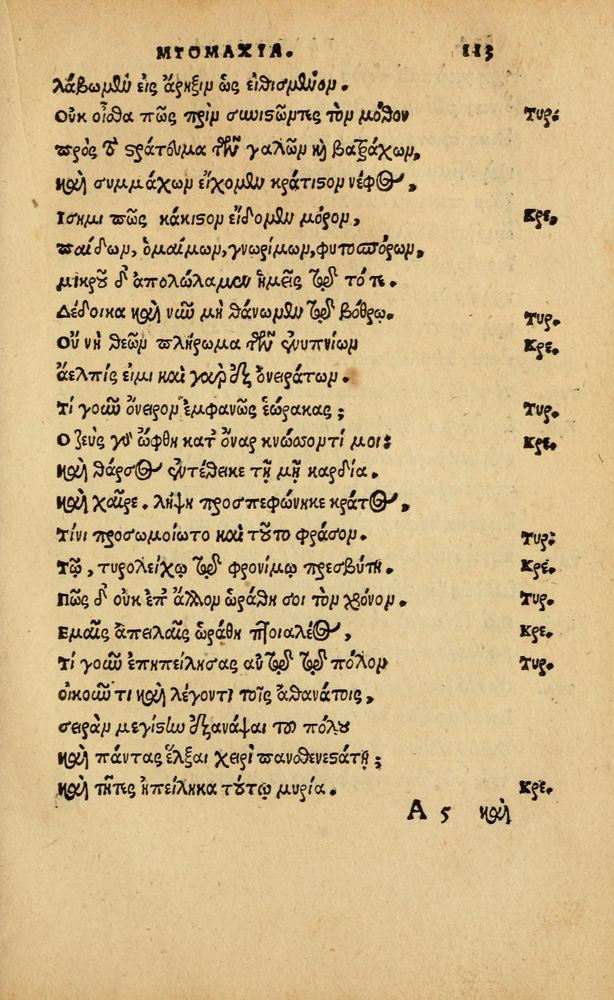 ΜΥΟΜΑΧΙΑ. 113
λάβωμεν εἰς ἄρηξιν ὡς εἰθισμένον.
Οὐκ οἶσθα πῶς πρὶν συνιστῶντες τὸν μόθον Τυρ.
πρὸς τὸ στράτευμα τῶν γαλῶν καὶ βατράχων,
καὶ συμμάχων εἴχομεν κράτιστον νέφος,
Ισημι πῶς κάκιστον εἴδομεν μόρον, Κρε.
παίδων, ὁμαίμων, γνωρίμων, φυτοσπόρων,
μικροῦ δ' ἀπολώλαμεν ἡμεῖς τοῦ τότε.
Δέδοικα καὶ νῦν μὴ θάνωμεν τοῦ βόθρῳ. Τυρ.
Οὔ νὴ θεῶν πλήρωμα τῶν ἐνυπνίων Κρε.
ἄελπίς εἰμι καὶ γὰρ ἐξ ὀνειράτων.
Τί γοῦν ὄνειρον ἐμφανῶς ἑώρακας; Τυρ.
Ο ζεὺς γὰρ ὤφθη κατ' ὄναρ κνώσσοντί μοι: Κρε.
καὶ θάρσος ἐντέθεικε τῇ μῇ καρδία.
καὶ χαῖρε. λήψῃ προσπεφώνηκε κράτος,
Τίνι προσωμοίωτο καὶ τοῦτο φράσον. Τυρ:
Τῷ, τυρολείχῳ τῷ φρονίμῳ πρεσβύτῃ. Κρε.
Πῶς δ' οὐκ ἐπ' ἄλλον ὡράθη σοι τὸν χρόνον. Τυρ.
Εμαῖς ἀπειλαῖς ὡράθη πτοιαλέος, Κρε.
Τί γοῦν ἐπηπείλησας αὐτῷ τῷ πόλον Τυρ.
οἰκοῦντι καὶ λέγοντι τοῖς ἀθανάτοις,
σειρὰν μεγίστην ἐξανάψαι τοῦ πόλου
καὶ πάντας ἕλξαι χειρὶ πανσθενεστάτῃ;
καὶ τῆτες ἠπείληκα τούτῳ μυρία. Κρε.
A 5 καὶ